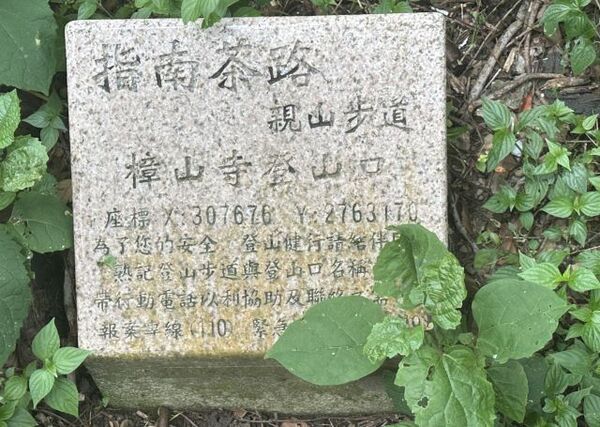 指南茶路
親山步道
樟山寺登山口
座標 X:307676 Y:2763170
為了您的安全 登山健行請結伴
熟記登山步道與登山口名稱
帶行動電話以利協助及聯絡
報案專線(110) 緊急